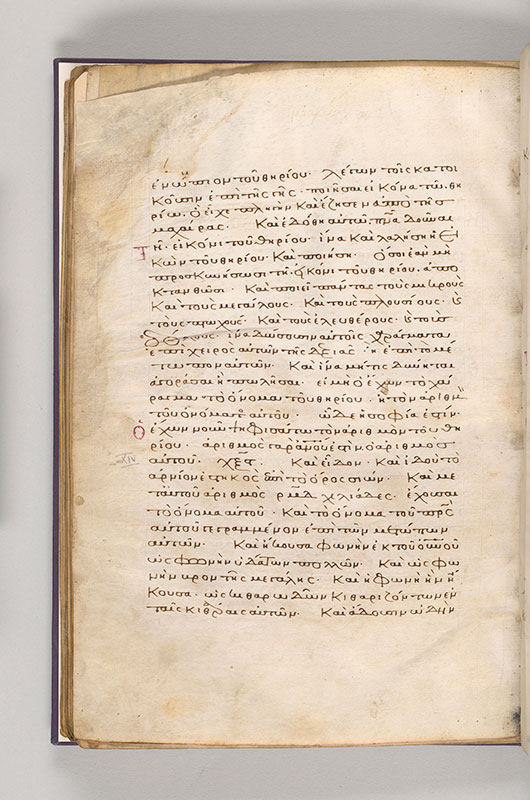 ἐνώπιον τοῦ θηρίου· λέγων τοῖς κατοι
κοῦσιν ἐπὶ τῆς γῆς· ποιῆσαι εἰκόνα τῶ θη
ρίω, ὃ εἶχε πληγὴν καὶ ἔζησεν ἀπὸ τῆς
μαχαίρας· καὶ ἐδόθη αὐτῶ, πνα δοῦναι
τῆ εἰκόνι τοῦ θηρίου· ἵνα καὶ λαλήση ἡ εἰ
κὼν τοῦ θηρίου· καὶ ποιήση· ὅσοι ἐὰν μὴ
προσκυνήσωσι τῆ εἰκόνι τοῦ θηρίου, ἀπο
κτανθῶσι· καὶ ποιεῖ πάντας τοὺς μικροὺς
καὶ τοὺς μεγάλους· καὶ τοὺς πλουσίους· καὶ
τοὺς πτωχούς· καὶ τοὺς ἐλευθέρους· καὶ τοὺς
δούλους· ἵνα δώσωσιν αὐτοῖς χαράγματα
ἐπὶ χειρὸς αὐτῶν τῆς δεξιᾶς· ἢ ἐπὶ τὸ μέ
τωπον αὐτῶν· καὶ ἵνα μή τις δύνηται
ἀγοράσαι ἢ πωλῆσαι· εἰ μὴ ὁ ἔχων τὸ χά
ραγμα· τὸ ὄνομα τοῦ θηρίου· ἢ τὸν ἀριθμ
τοῦ ὀνόματος αὐτοῦ· ὧδε ἡ σοφία ἐστίν·
ὁ ἔχων νοῦν ψηφισάτω τὸν ἀριθμὸν τοῦ θη
ρίου· ἀριθμὸς γὰρ ἀνου ἐστὶν, ὁ ἀριθμὸς
αὐτοῦ· χξϛ· καὶ εἶδον· καὶ ἰδοὺ τὸ
XIV
ἀρνίον ἑστηκὸς ἐπὶ τὸ ὄρος σιών· καὶ με
τ αὐτοῦ ἀριθμὸς ρμδ χιλιάδες· ἔχουσαι
τὸ ὄνομα αὐτοῦ· καὶ τὸ ὄνομα τοῦ πρς
αὐτοῦ γεγραμμένον ἐπὶ τῶν μετώπων
αὐτῶν· καὶ ἤκουσα φωνὴν ἐκ τοῦ οὐνοῦ
ὡς φωνὴν ὑδάτων πολλῶν· καὶ ὡς φω
νὴν βροντῆς μεγάλης· καὶ ἡ φωνὴ ἣν ἤ
κουσα· ὡς κιθαρωδῶν κιθαριζόντων ἐν
ταῖς κιθάραις αὐτῶν· καὶ ἄδουσιν ὠδὴν